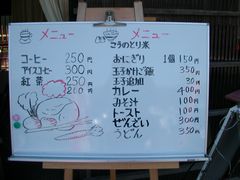 メニュー
コーヒー 250円
アイスコーヒー 300円
紅茶 250円
200
メニュー
コウノとり米
おにぎり 1個 150円
玉子かけご飯 350
玉子追加 30
カレー 400
みそ汁 100
トースト 100
ぜんざい 300
うどん 350